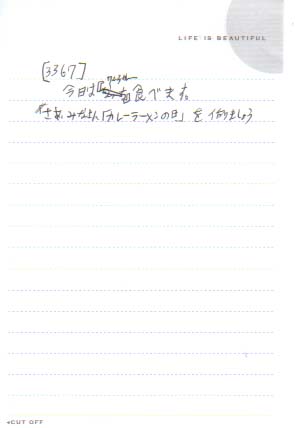 LIFE IS BEAUTIFUL
[3367]
今日は 食べます。
さあ、みなさん「カレーラーメンの日」を作りましょう
CUT OFF